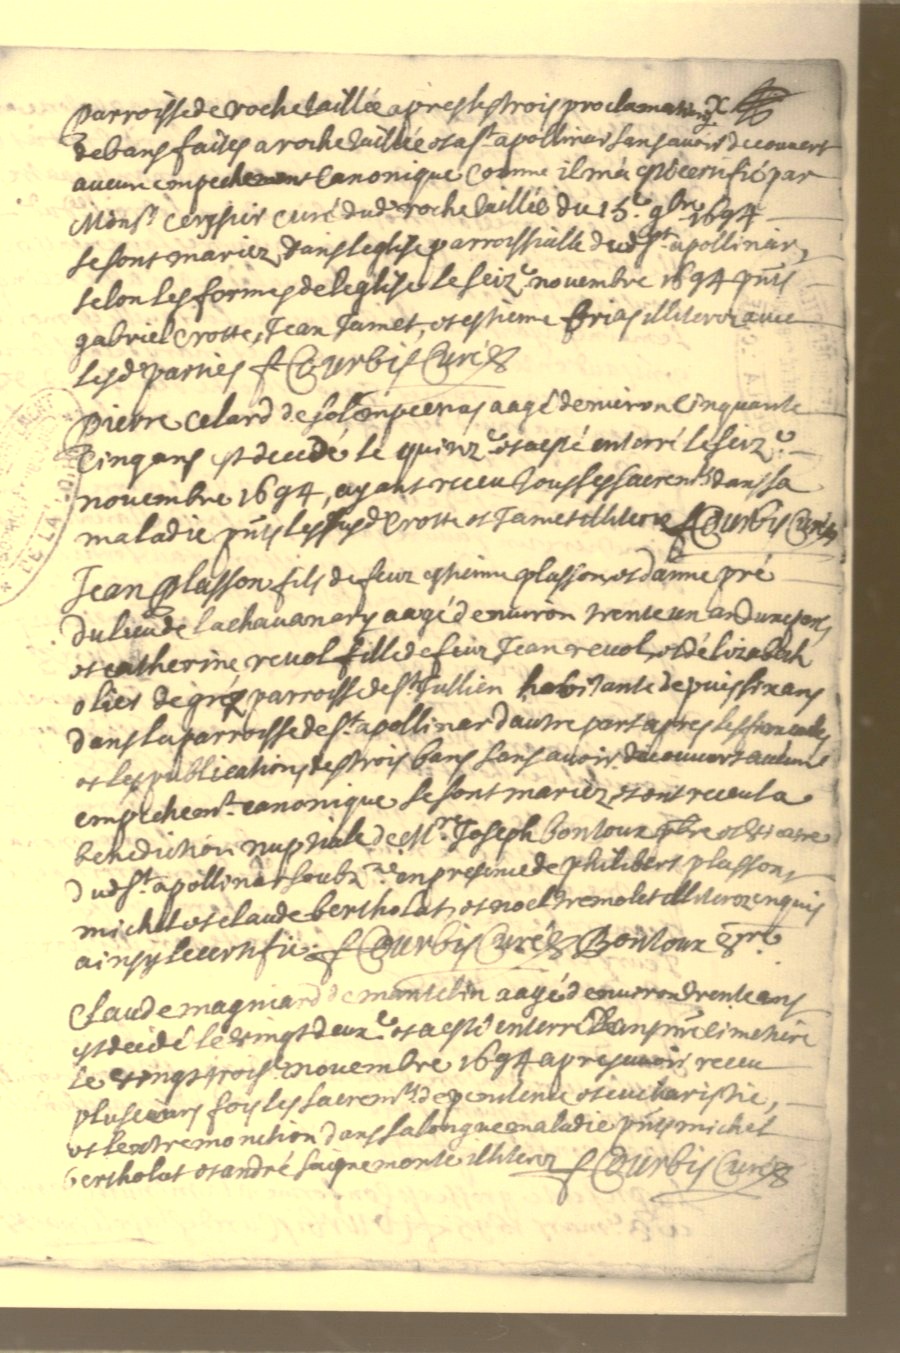 parroisse de rochetaillée apres les trois proclamations
de bans faites a rochetaillée et a st apollinar sans avoir decouvert
aucun empechement canonique comme il m'a esté certifié par
Monsr curé dud rochetaillée du 15e 9bre 1694
se sont mariez dans leglise parroissialle dud st apollinar,
selon les formes de leglise le seize novembre 1694 pnts
gabriel crotte, Jean Jamet, et estienne frias illiterez avec
les d parties Courbis Curé
pierre celard de aagé denviron cinquante
cinq ans est decedé le quinze et a esté enterré le seize
novembre 1694, ayant receu tous ses sacremts dans sa
maladie pnts les susd crotte et Jamet illiterez Courbis Curé
Jean plasson fils de feux estienne plasson, et danne pré
du lieu de lachavanary aagé denviron trente un an dune part
et catherine revol fille de feux Jean revol, et délizabeth
olier de parroisse de st Jullien habitante depuis six ans
dans la parroisse de st apollinar dautre part apres les fiancailles
et les publications des trois bans sans avoir decouvert aucun
empechemt canonique se sont mariéz, et ont receu la
benediction nuptiale de Mre Joseph Bontoux pbre et vicaire
dud st apollinar soubzne en presence de philibert plasson,
michel et claude bertholat, et noel tremolet illiterez enquis
ainsy le certifie. Courbis Curé Bontoux pre.
Claude magniard de mantelin aagé denviron trente ans
est decedé le vingt deuxe et a esté enterré dans nre cimetiere
le vingt trois novembre 1694 apres avoir receu
plusieurs fois les sacremts de penitence et eucharistie,
et lextremonction dans sa longue maladie pnts michel
bertholat et andré saignemorte illiterez Courbis Curé